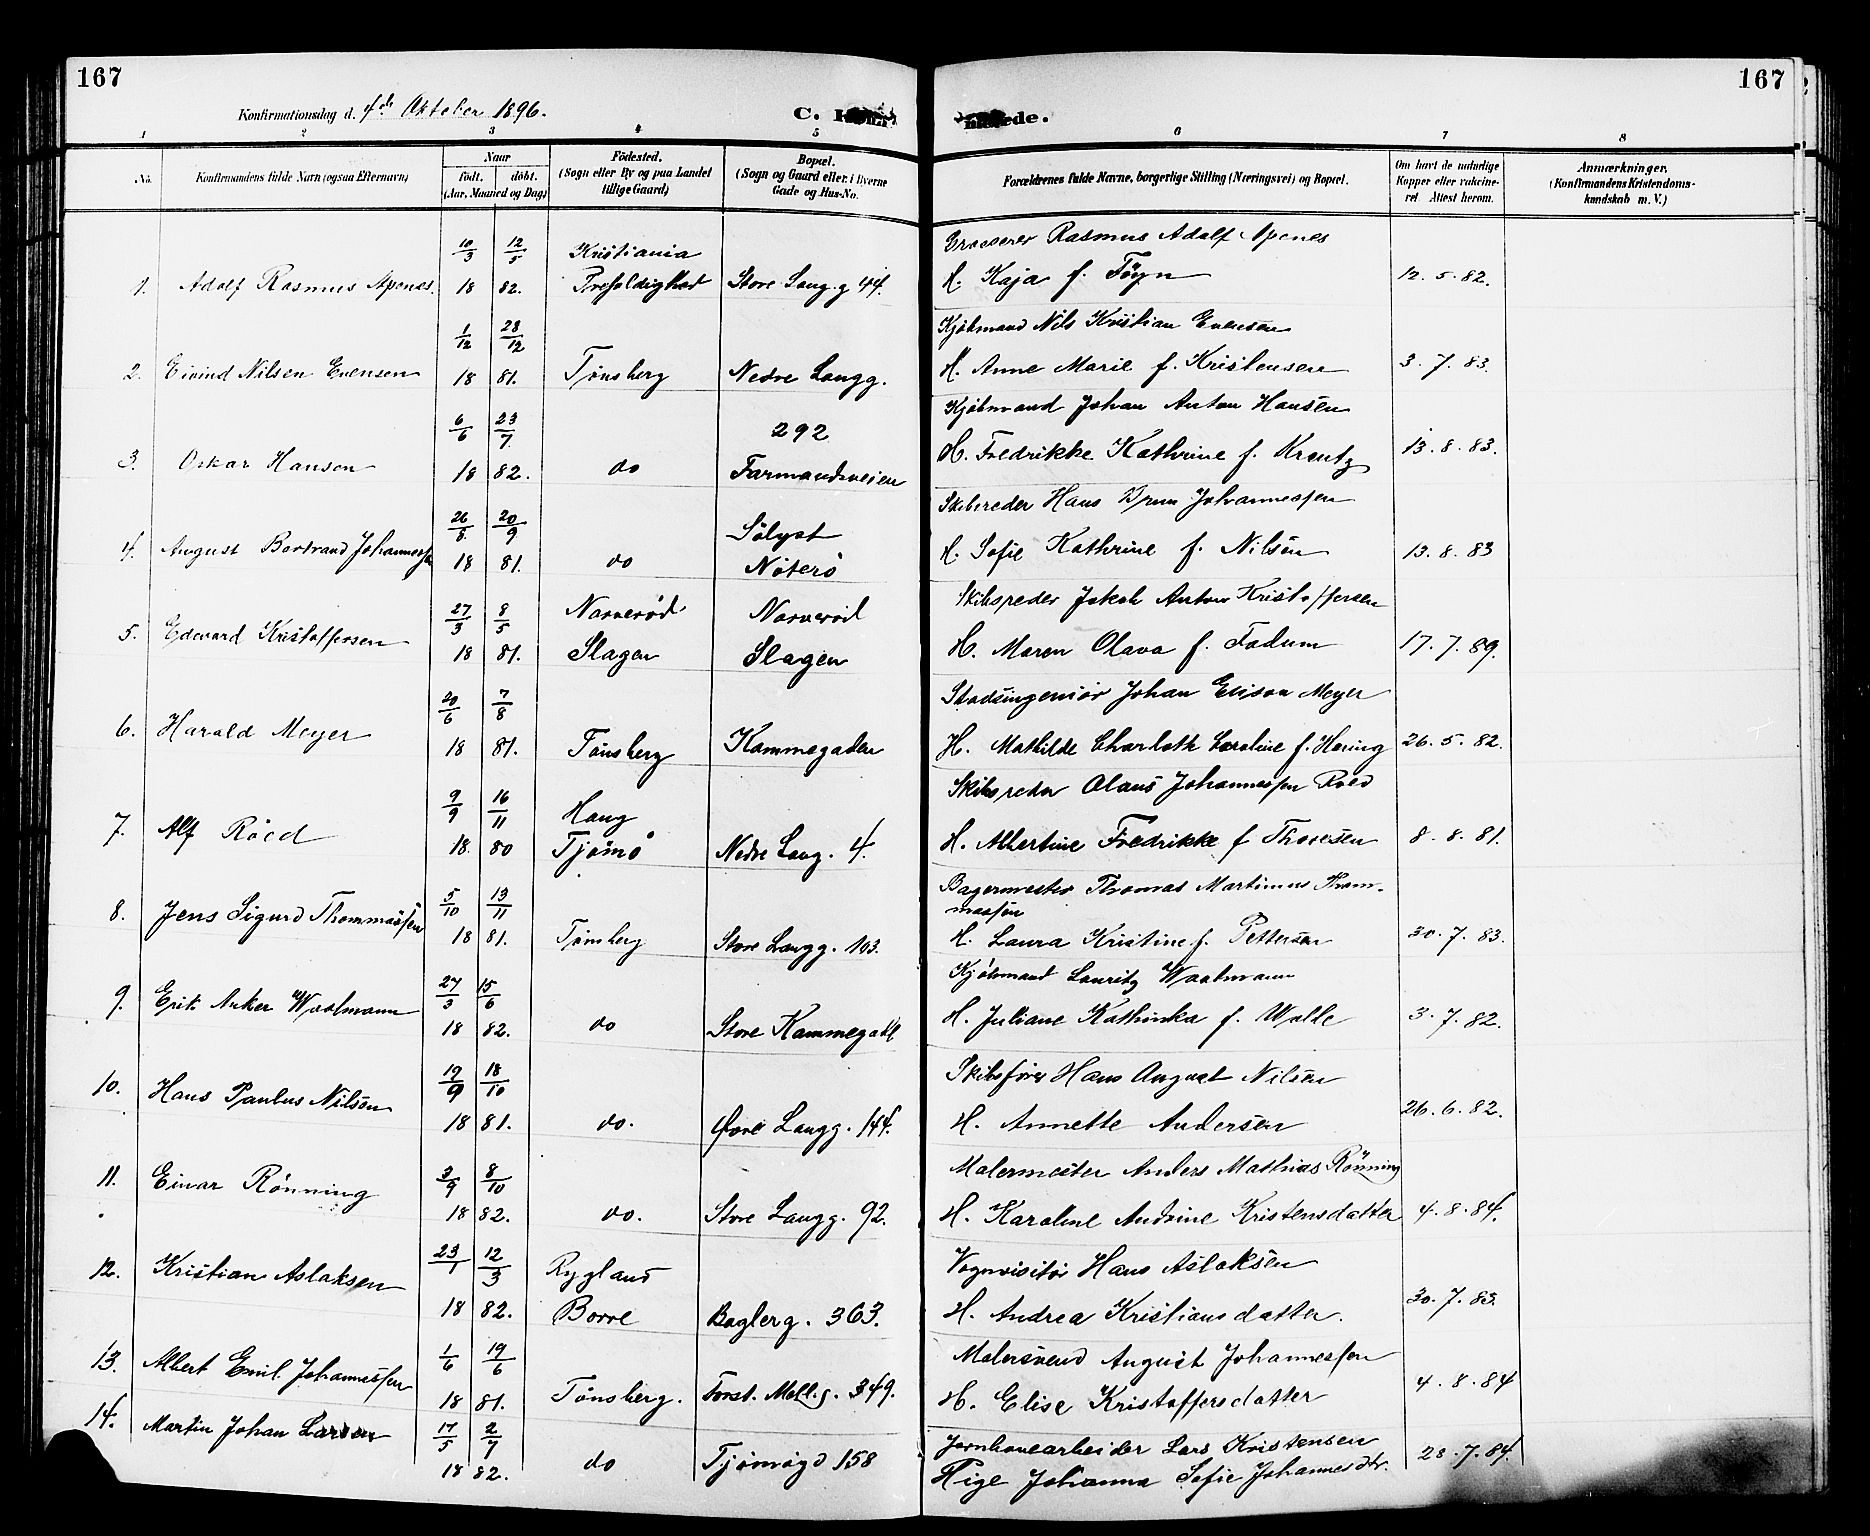 167
167
Konfirmationsdag d. 4de Oktober 1896.
C. ede.
1 2 3 4 5 6 7 8
No. Konfirmandens fulde Navn (ogsaa Efternavn) Naar født. døbt. (Aar, Maaned og Dag) Fødested. (Sogn eller By og paa Landet tillige Gaard) Bopæl. (Sogn og Gaard eller i Byerne Gade og Hus-No. Forældrenes fulde Navne, borgerlige Stilling (Næringsvei) og Bopæl. Om havt de naturlige Kopper eller vakcineret. Attest herom. Anmærkninger. (Konfirmandens Kristendomskundskab m. V.)
10/3 12/5 Kristiania Grosserer Rasmus Adolf Apenes
1. Adolf Rasmus Apenes. 18 82. Trefoldighed Store Langg 44. H. Kaja f. Føyn 12.5.82.
1/12 28/12 Kjøbmand Nils Kristian Evensen
2. Eivind Nilsen Evensen 18 81. Tønsberg Nedre Langg. H. Anne Marie f. Kristensen 3.7.83.
6/6 23/7 292 Kjøbmand Johan Anton Hansen
3. Oskar Hansen 18 82. do Farmandsveien H. Fredrikke Kathrine f. Kreutz 13.8.83.
26/8 20/9 Sølyst Skibsreder Hans Bruun Johannessen
4. August Bertrand Johannessen 18 81. do Nøterø H. Sofie Kathrine f. Nilsen 13.8.83
27/3 8/5 Narverød Narverød Skibsreder Jakob Anton Kristoffersen
5. Edevard Kristoffersen 18 81. Slagen Slagen H. Maren Olava f. Fadum 17.7.89.
20/6 7/8 Stadsingeniør Johan Elison Meyer
6. Harald Meyer 18 81. Tønsberg Kammegaden H. Mathilde Charlotte Caroline f. Hering 26.5.82.
9/9 16/11 Haug Skibsreder Olaus Johannessen Røed
7. Alf Röed 18 80 Tjømø Nedre Lang. 4. H. Albertine Fredrikke f Thoresen 8.8.81.
5/10 13/11 Bagermester Thomas Martinus Thommassen
8. Jens Sigurd Thommassen 18 81. Tønsberg Store Langg. 103. H. Laura Kristine f. Pettersen 30.7.83.
27/3 15/6 Kjøbmand Lauritz Waalmann
9. Erik Anker Waalmann 18 82. do Store Kammegade H. Juliane Kathinka f. Wølle 3.7.82.
19/9 18/10 Skibsfører Hans August Nilsen
10. Hans Paulus Nilsen 18 81. do. Øvre Langg. 144. H. Annette Andersen 26.6.82.
3/9 8/10 Malermester Anders Mathias Rønning
11. Einar Rønning 18 82. do. Store Langg. 92. H. Karoline Andrine Kristensdatter 4.8.84.
23/1 12/3 Rygland Vognvisitør Hans Aslaksen
12. Kristian Aslaksen 18 82. Borre Baglerg. 363. H. Andrea Kristiansdatter. 30.7.83.
1/6 19/6 Malersvend August Johannessen
13. Albert Emil Johannessen 18 81. Tønsberg. Forst. Møllg. 349. H. Elise Kristoffersdatter 4.8.84
17/5 2/7 Jernbanearbeider Lars Kristensen
14. Martin Johan Larsen 18 82. do Tjømøgd 158 Pige Johanna Sofie Johannesdtr. 28.7.84.